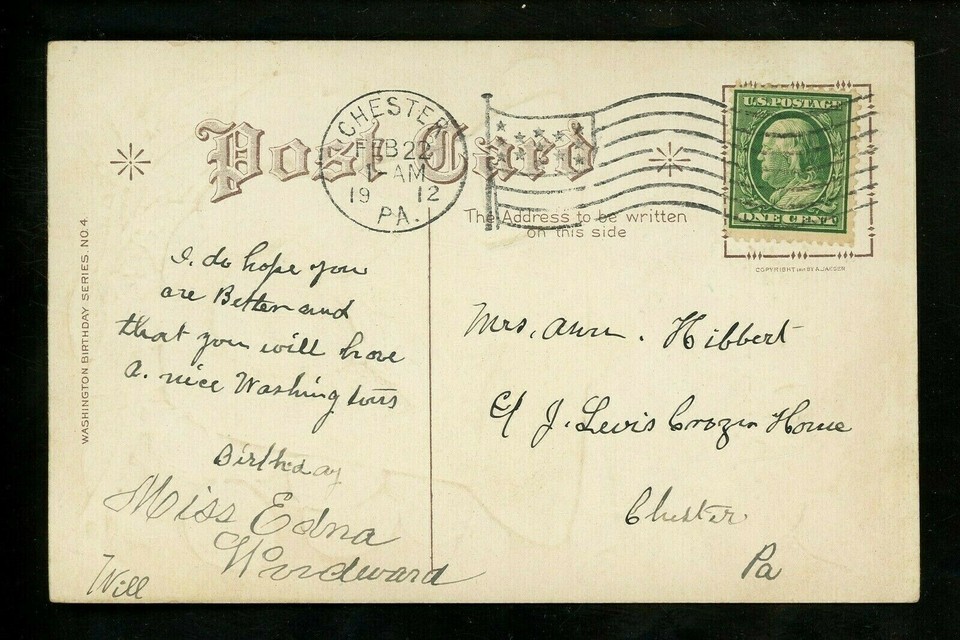 Post Card
CHESTER
FEB 22
AM
19 12
PA.
U.S. POSTAGE
ONE CENT
The Address to be written
on this side
COPYRIGHT 1911 BY A. JACKSON
WASHINGTON BIRTHDAY SERIES. NO. 4.
I. do hope you
are Better and
that you will have
a. nice Washingtons
Birthday
Miss Edna
Woodward
Will
Mrs. Ann. Hibbert
c/ J. Lewis Crozer Home
Chester
Pa